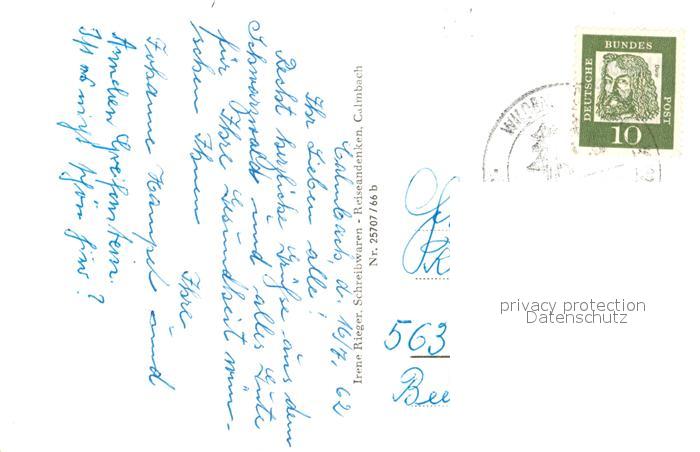 Calmbach, d. 16/7. 62
Ihr Lieben alle!
Recht herzliche Grüße aus dem
Schwarzwald und alles Gute
für Ihre Gesundheit wün-
schen Ihnen
Ihre
Johanne Hampel und
Annchen Greifenstein.
Ist es nicht schön hier?
Irene Rieger, Schreibwaren - Reiseandenken, Calmbach
Nr. 25707/66 b
DEUTSCHE
BUNDES
POST
Dürer
10
WILDB
563
privacy protection
Datenschutz